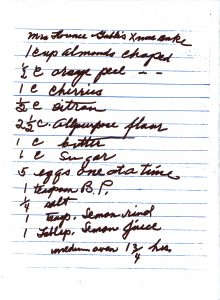 Mrs Horace Gibb's Xmas Cake
1 cup almonds chaped
1/2 C orange peel - -
1 C cherries
1/2 C citron
2 1/2 C. Allpurpose flour
1 C butter
1 C Sugar
5 eggs one at a time
1 teaspoon B.P.
1/4 salt
1 teasp. Lemon rind
1 Tablsp. Lemon Juice
medium oven 1 3/4 hrs